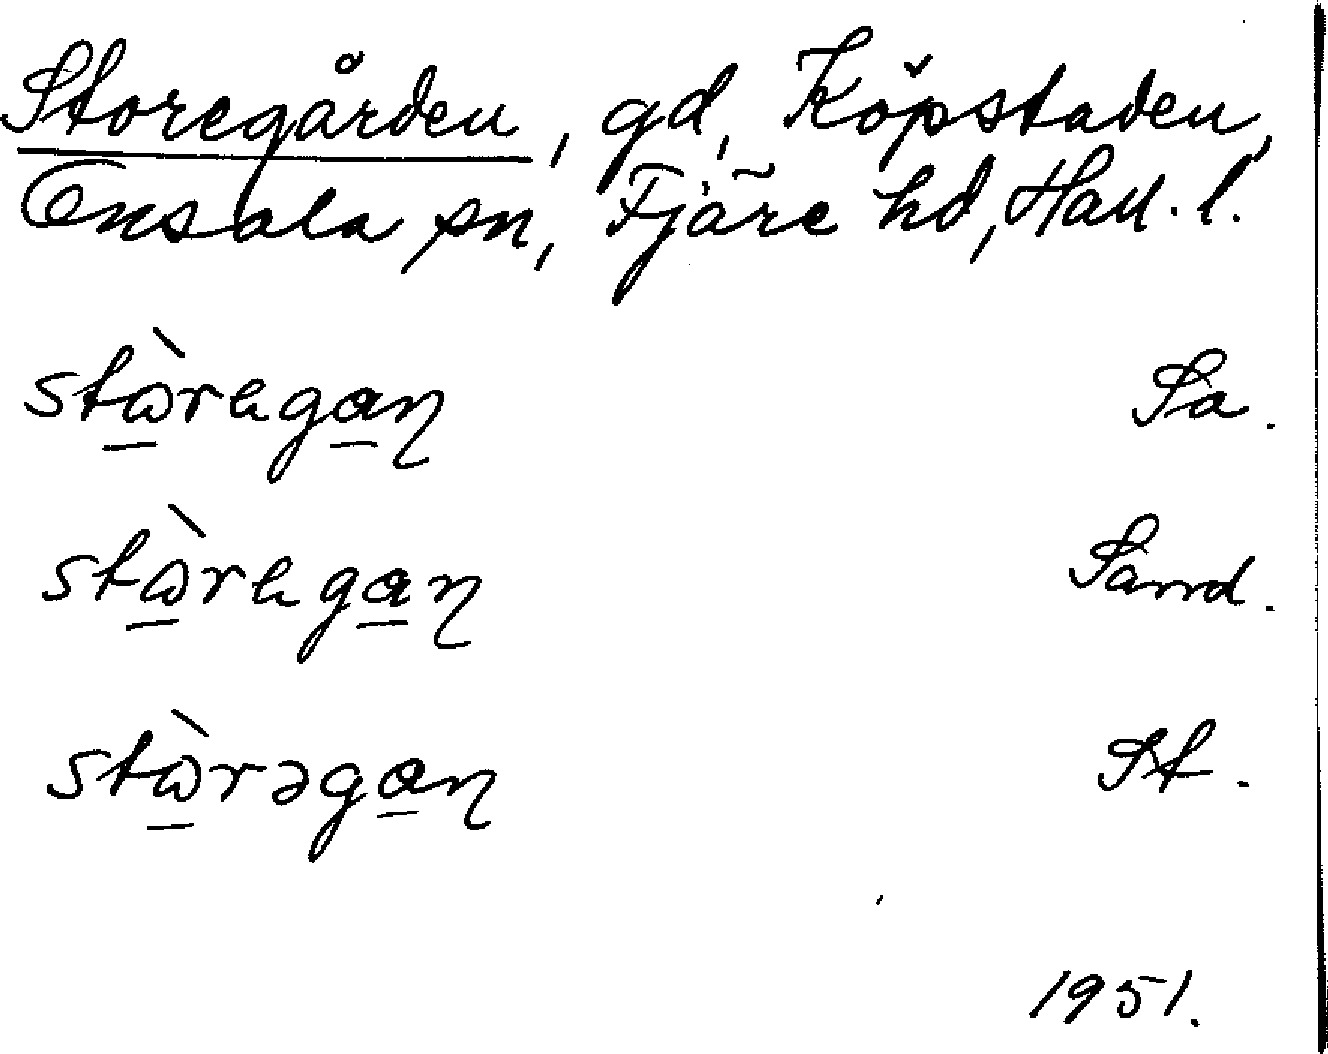 Storegården, gd, Köpstaden,
Onsala sn, Fjäre hd, Hall. l.
stɷ̀regaɳ Sa.
stɷ̀regaɳ Sand.
stɷ̀rəgaɳ St.
1951.